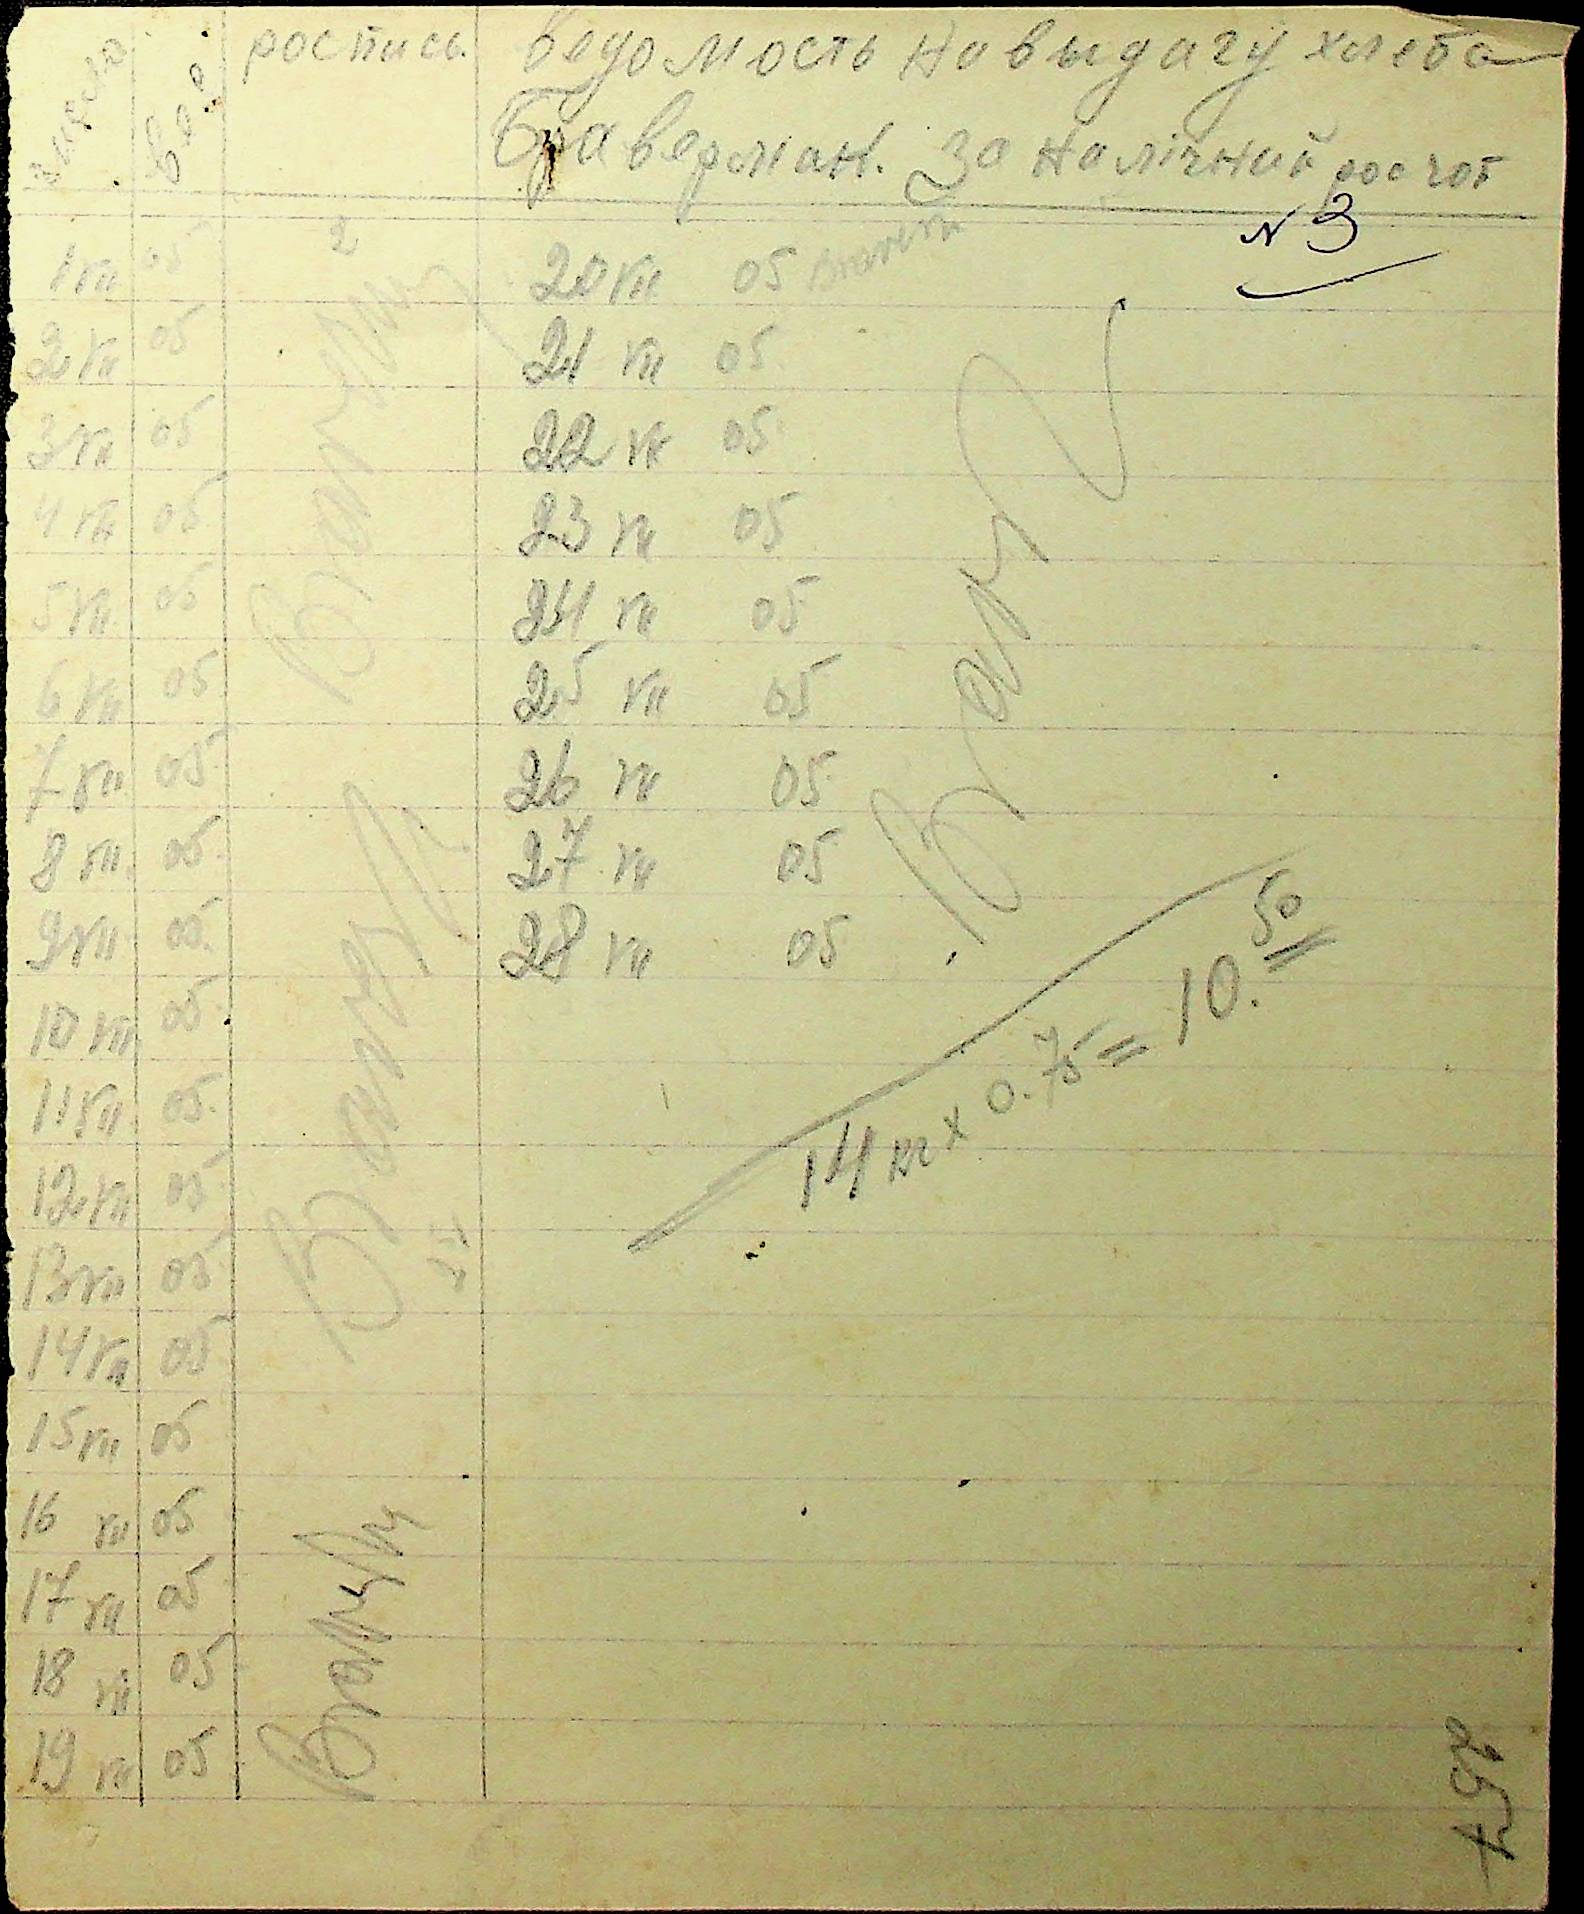 число вес роспись Ведомость на выдачу хлеба
Браверман. За налічний росчот
N 3
2
1 VII 05
2 VII 05
3 VII 05
4 VII 05
5 VII 05
6 VII 05
7 VII 05
8 VII 05
9 VII 05
10 VII 05
11 VII 05
12 VII 05
13 VII 05
14 VII 05
15 VII 05
16 VII 05
17 VII 05
18 VII 05
19 VII 05
20 VII 05
21 VII 05
22 VII 05
23 VII 05
24 VII 05
25 VII 05
26 VII 05
27 VII 05
28 VII 05
14 кг x 0.75 = 10.50